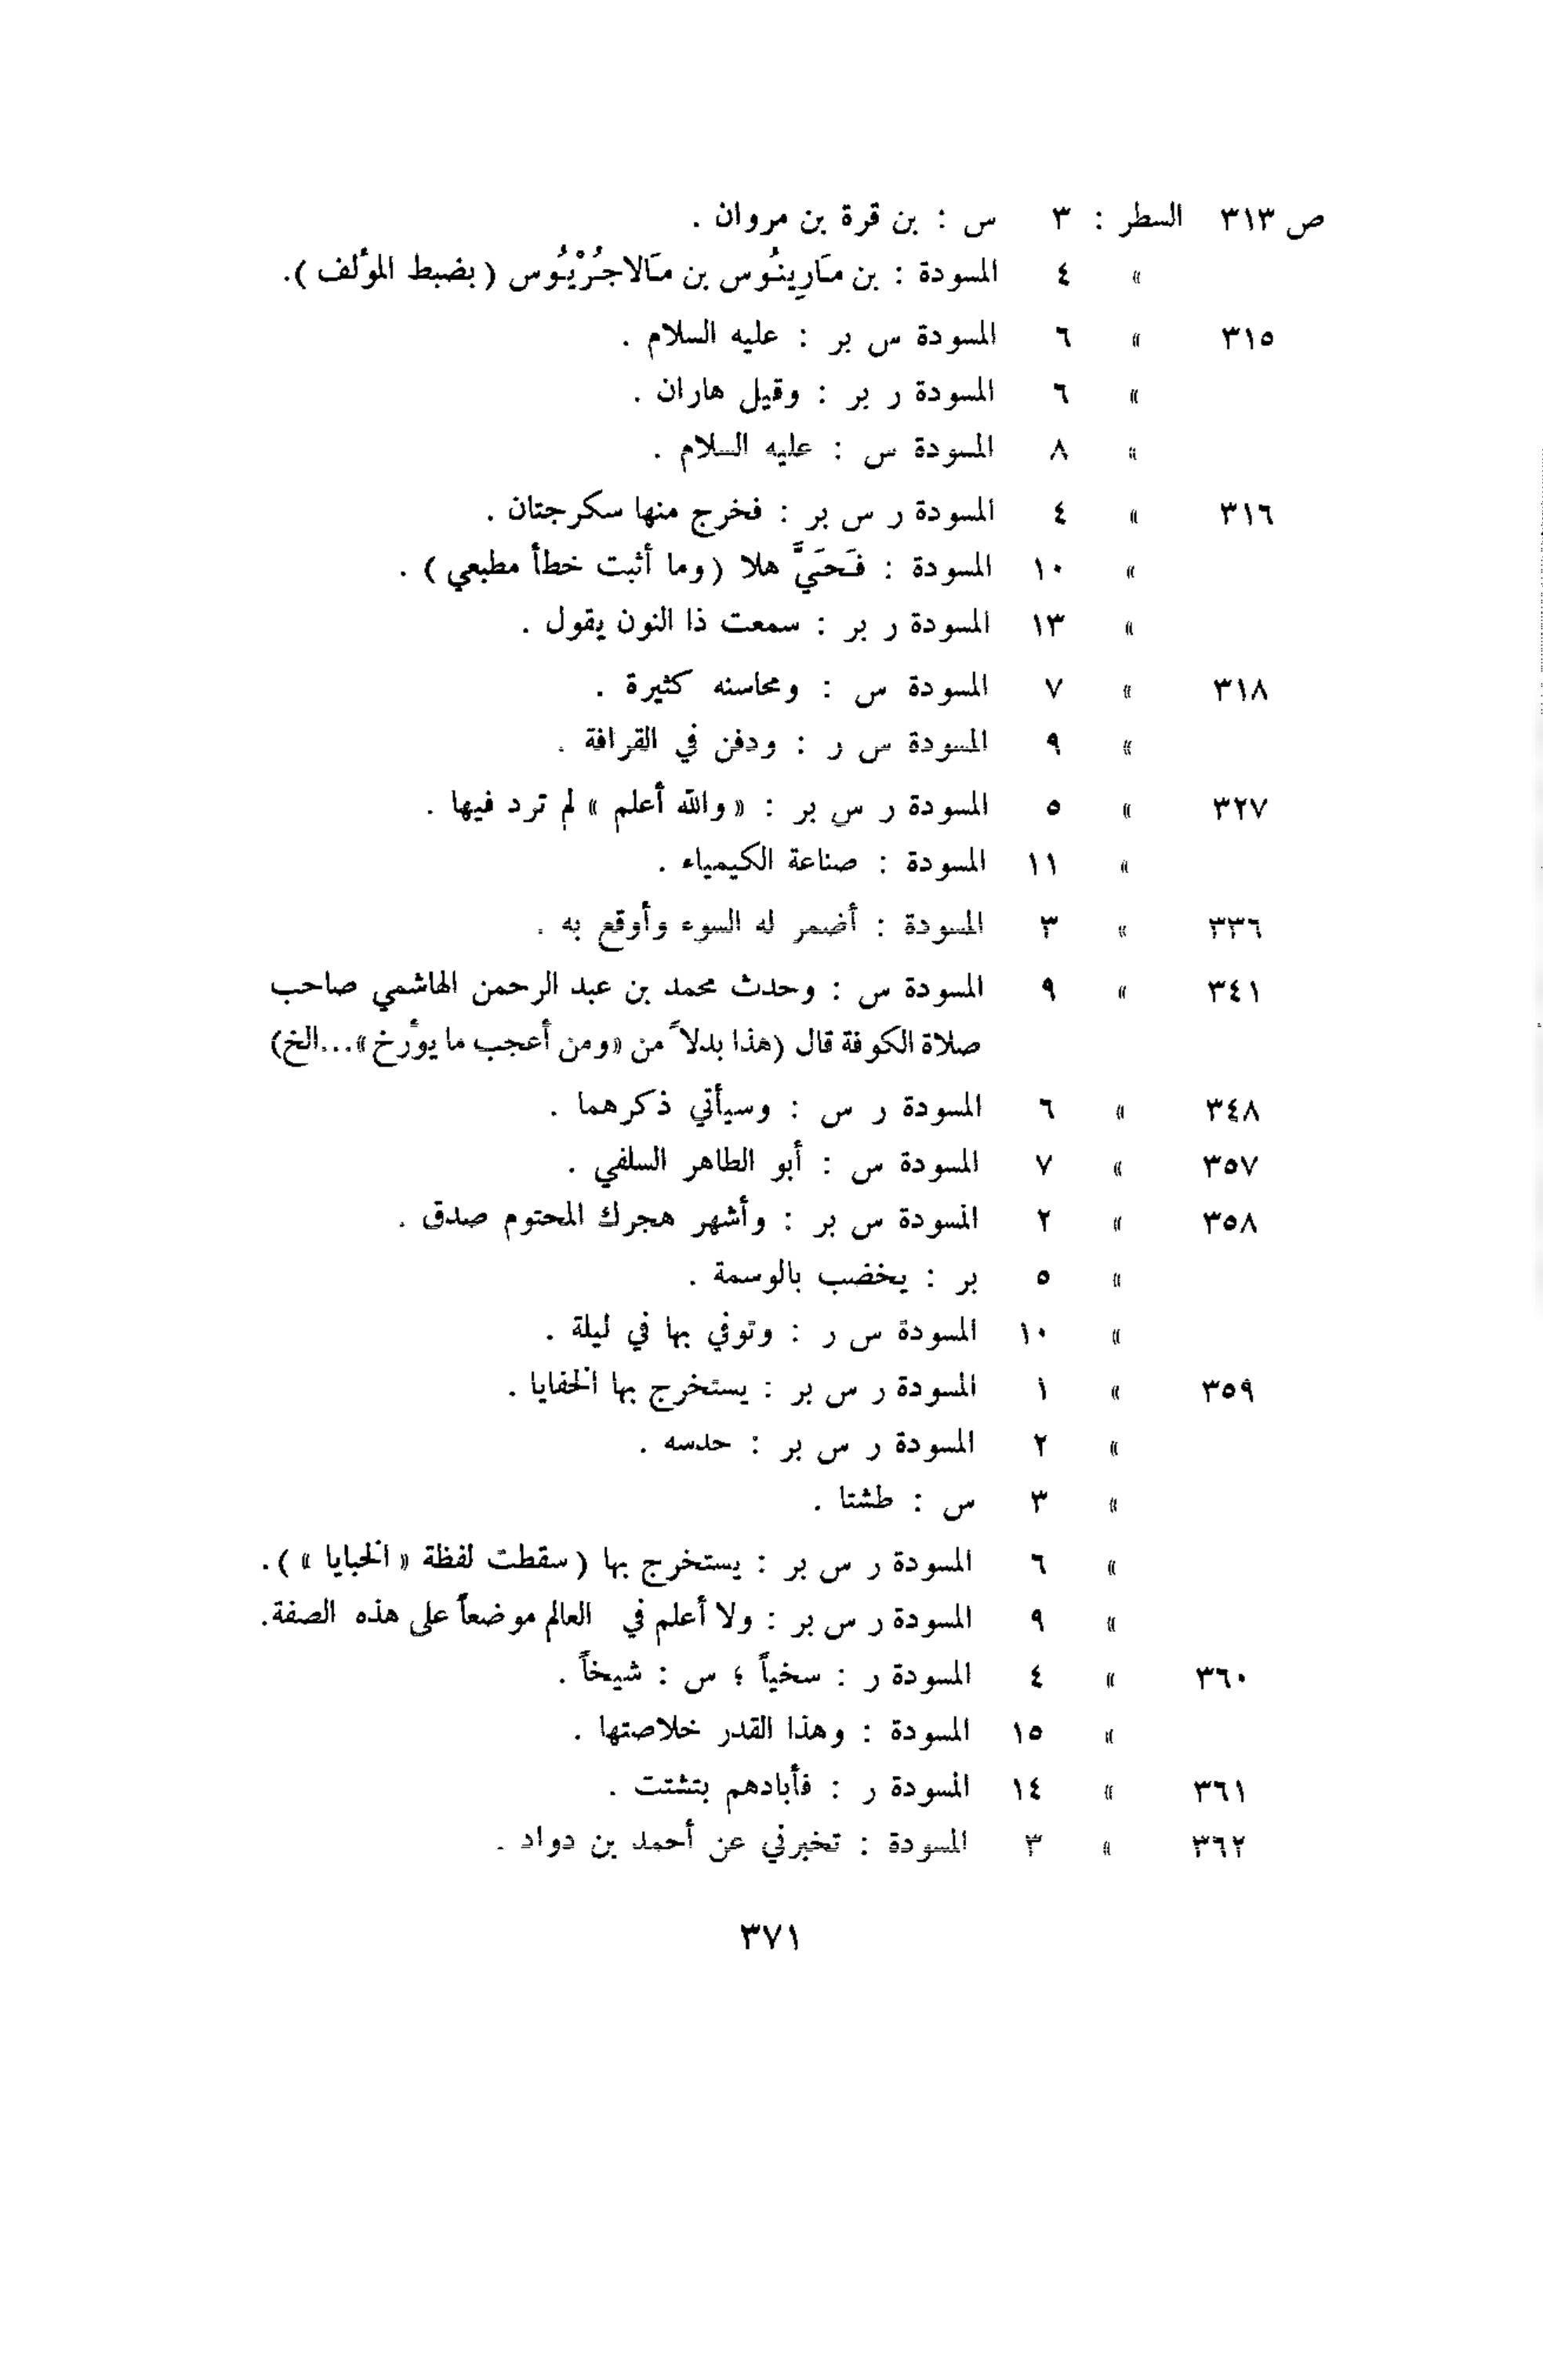 ص ٣١٣ السطر : ٣ س : بن قرة بن مروان .
» ٤ المسودة : بن مَارِينُوس بن مَالاجُرْيُوس ( بضبط المؤلف ).
٣١٥ » ٦ المسودة س بر : عليه السلام .
» ٦ المسودة ر بر : وقيل هاران .
» ٨ المسودة س : عليه السلام .
٣١٦ » ٤ المسودة ر س بر : فخرج منها سكرجتان .
» ١٠ المسودة : فَحَيَّ هلا ( وما أثبت خطأ مطبعي ) .
» ١٣ المسودة ر بر : سمعت ذا النون يقول .
٣١٨ » ٧ المسودة س : ومحاسنه كثيرة .
» ٩ المسودة س ر : ودفن في القرافة .
٣٢٧ » ٥ المسودة ر س بر : « والله أعلم » لم ترد فيها .
» ١١ المسودة : صناعة الكيمياء .
٣٣٦ » ٣ المسودة : أضمر له السوء وأوقع به .
٣٤١ » ٩ المسودة س : وحدث محمد بن عبد الرحمن الهاشمي صاحب
صلاة الكوفة قال (هذا بدلاً من «ومن أعجب ما يؤرخ»...الخ)
٣٤٨ » ٦ المسودة ر س : وسيأتي ذكرهما .
٣٥٧ » ٧ المسودة س : أبو الطاهر السلفي .
٣٥٨ » ٢ المسودة س بر : وأشهر هجرك المحتوم صدق .
» ٥ بر : يخضب بالوسمة .
» ١٠ المسودة س ر : وتوفي بها في ليلة .
٣٥٩ » ١ المسودة ر س بر : يستخرج بها الخفايا .
» ٢ المسودة ر س بر : حدسه .
» ٣ س : طشتا .
» ٦ المسودة ر س بر : يستخرج بها ( سقطت لفظة « الخبايا » ).
» ٩ المسودة ر س بر : ولا أعلم في العالم موضعاً على هذه الصفة.
٣٦٠ » ٤ المسودة ر : سخياً ؛ س : شيخاً .
» ١٥ المسودة : وهذا القدر خلاصتها .
٣٦١ » ١٤ المسودة ر : فأبادهم بتشتت .
٣٦٢ » ٣ المسودة : تخبرني عن أحمد بن دواد .
٣٧١